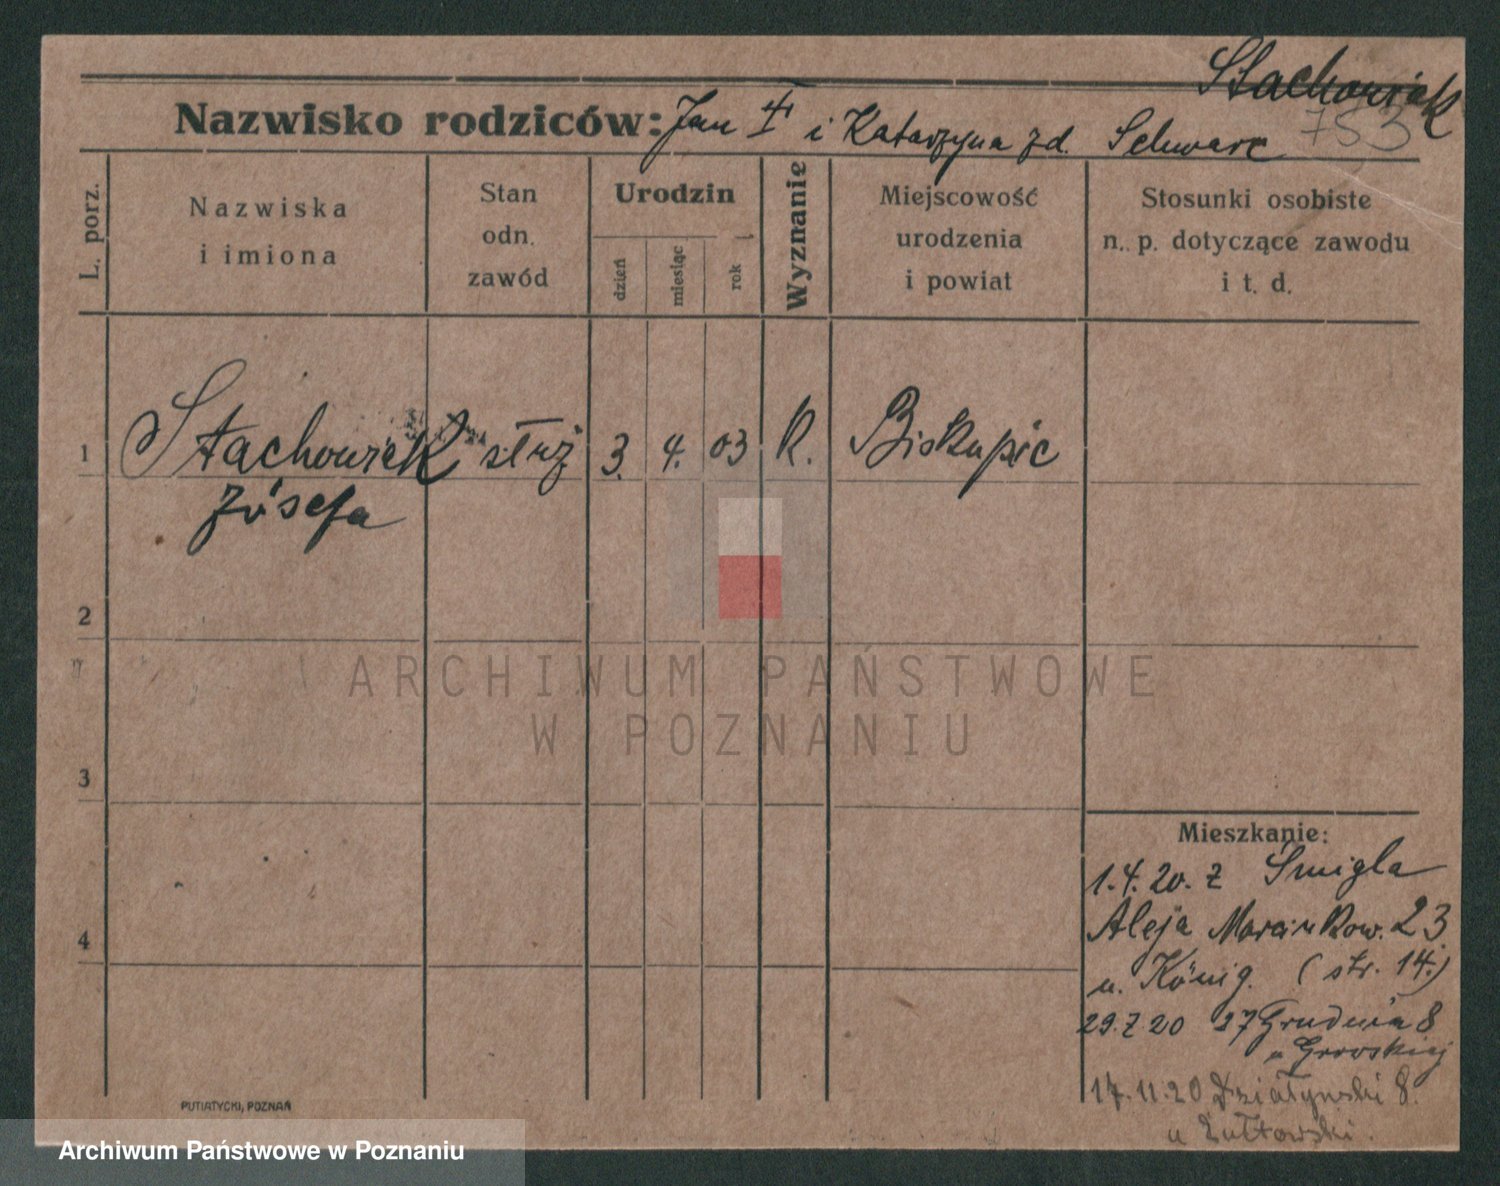 Stachowiak
753
Nazwisko rodziców: Jan † i Katarzyna zd. Schwarc
L. porz.
Nazwiska
i imiona
Stan
odn.
zawód
Urodzin
dzień
miesiąc
rok
Wyznanie
Miejscowość
urodzenia
i powiat
Stosunki osobiste
n. p. dotyczące zawodu
i t. d.
1 Stachowiak służ 3. 4. 03 R. Biskupic
Józefa
2
3
4
Mieszkanie:
1.4.20. z Śmigla
Aleja Marcinkow. 23
u. König. (str. 14.)
29.7.20 27 Grudnia 8
u
17.11.20 Działyński 8.
u Żółtowski.
PUTIATYCKI, POZNAŃ
ARCHIWUM PAŃSTWOWE
W POZNANIU
Archiwum Państwowe w Poznaniu